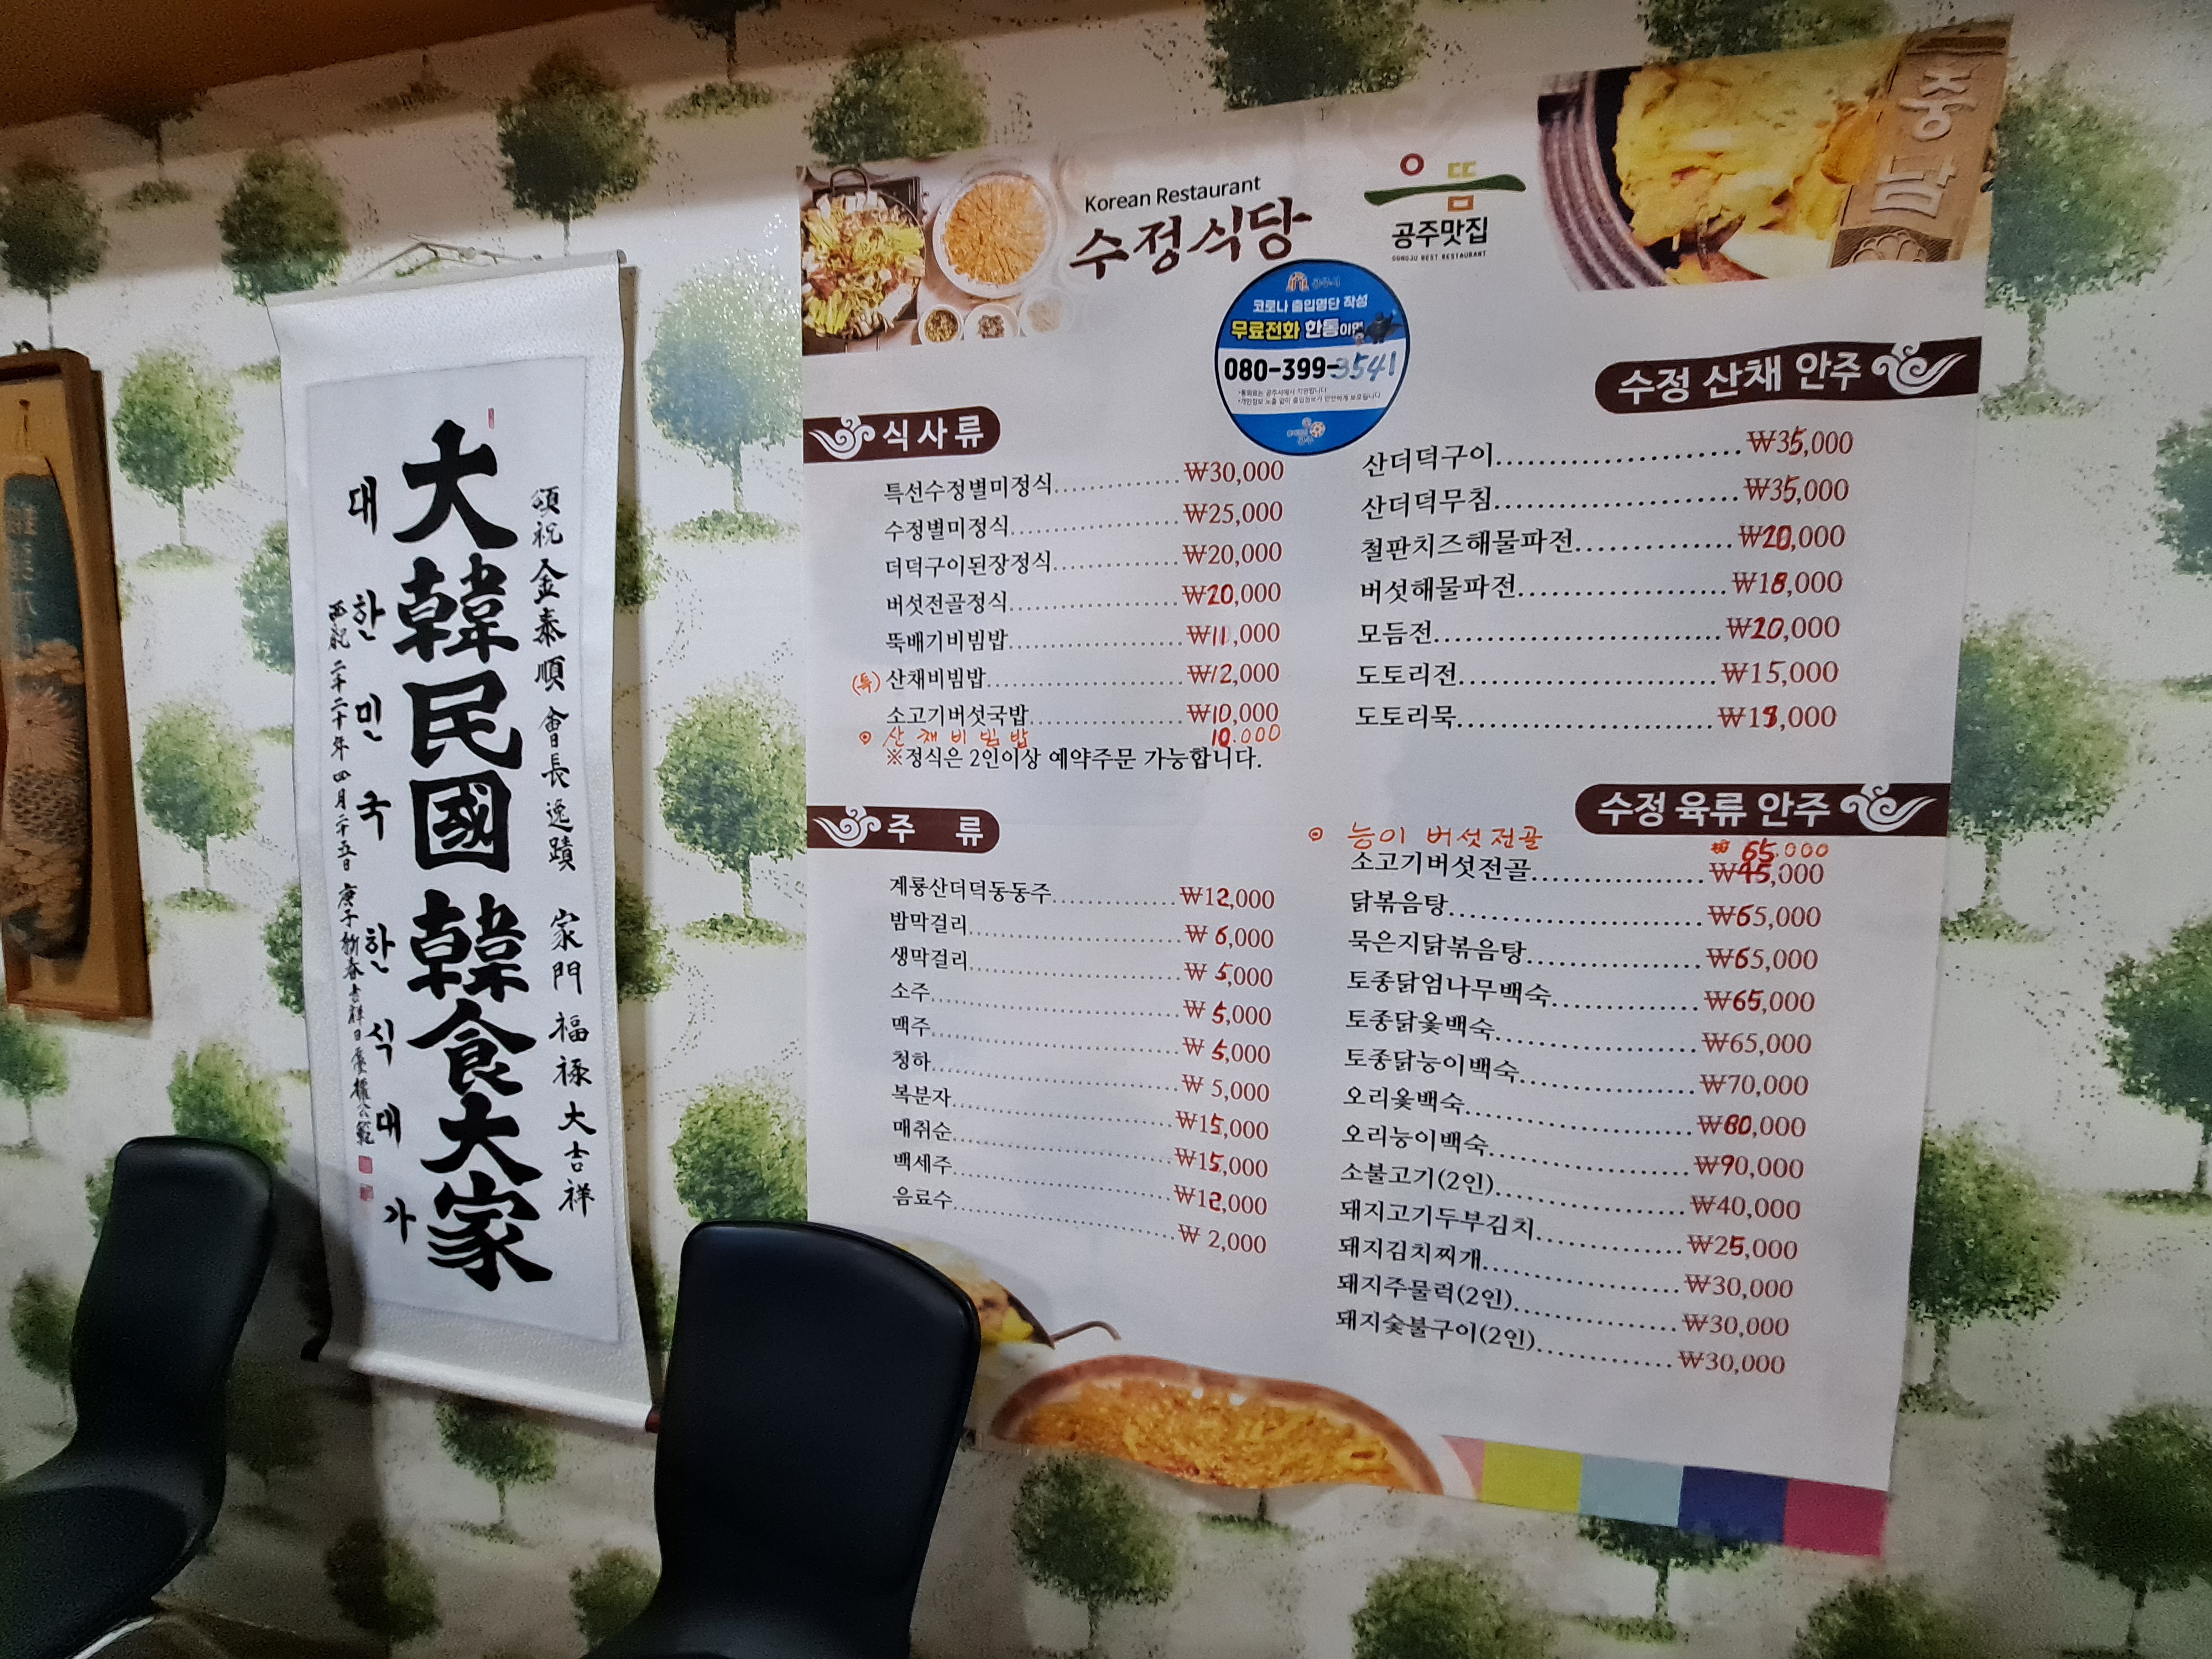 大韓民國 韓食大家
대한민국 한식대가
頌祝 金泰順 會長 逸蹟 家門 福祿 大吉祥
Korean Restaurant
수정식당
으뜸
공주맛집
GONGJU BEST RESTAURANT
충남
공주시
코로나 출입명단 작성
무료전화 한통이면
080-399-3541
식사류
특선수정별미정식 ₩30,000
수정별미정식 ₩25,000
더덕구이된장정식 ₩20,000
버섯전골정식 ₩20,000
뚝배기비빔밥 ₩11,000
(특) 산채비빔밥 ₩12,000
소고기버섯국밥 ₩10,000
⊙ 산채비빔밥 10.000
※정식은 2인이상 예약주문 가능합니다.
주 류
계룡산더덕동동주 ₩12,000
밤막걸리 ₩ 6,000
생막걸리 ₩ 5,000
소주 ₩ 5,000
맥주 ₩ 5,000
청하 ₩ 5,000
복분자 ₩15,000
매취순 ₩15,000
백세주 ₩12,000
음료수 ₩ 2,000
수정 산채 안주
산더덕구이 ₩35,000
산더덕무침 ₩35,000
철판치즈해물파전 ₩20,000
버섯해물파전 ₩18,000
모듬전 ₩20,000
도토리전 ₩15,000
도토리묵
수정 육류 안주
⊙ 능이 버섯전골 ₩ 65.000
소고기버섯전골 ₩45,000
닭볶음탕 ₩65,000
묵은지닭볶음탕 ₩65,000
토종닭엄나무백숙 ₩65,000
토종닭옻백숙 ₩65,000
토종닭능이백숙 ₩70,000
오리옻백숙 ₩80,000
오리능이백숙 ₩90,000
소불고기(2인) ₩40,000
돼지고기두부김치 ₩25,000
돼지김치찌개 ₩30,000
돼지주물럭(2인) ₩30,000
돼지숯불구이(2인) ₩30,000